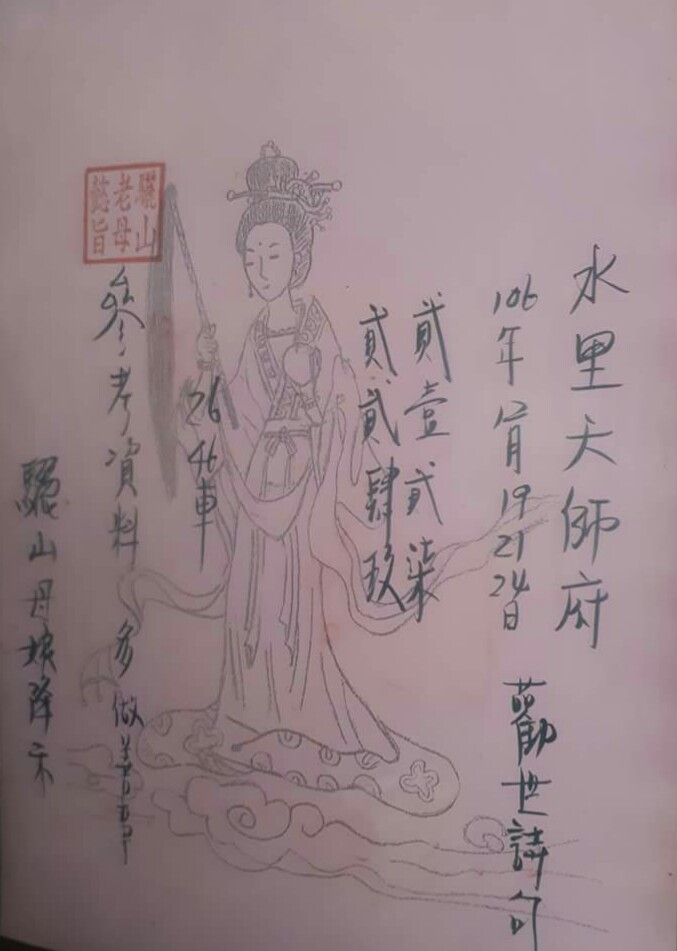 水里天師府
106年12月19 21 24日
勸世詩句
貳壹貳柒
貳貳肆玖
26 46車
驪山老母懿旨
參考資料 多做善事
驪山母娘降示